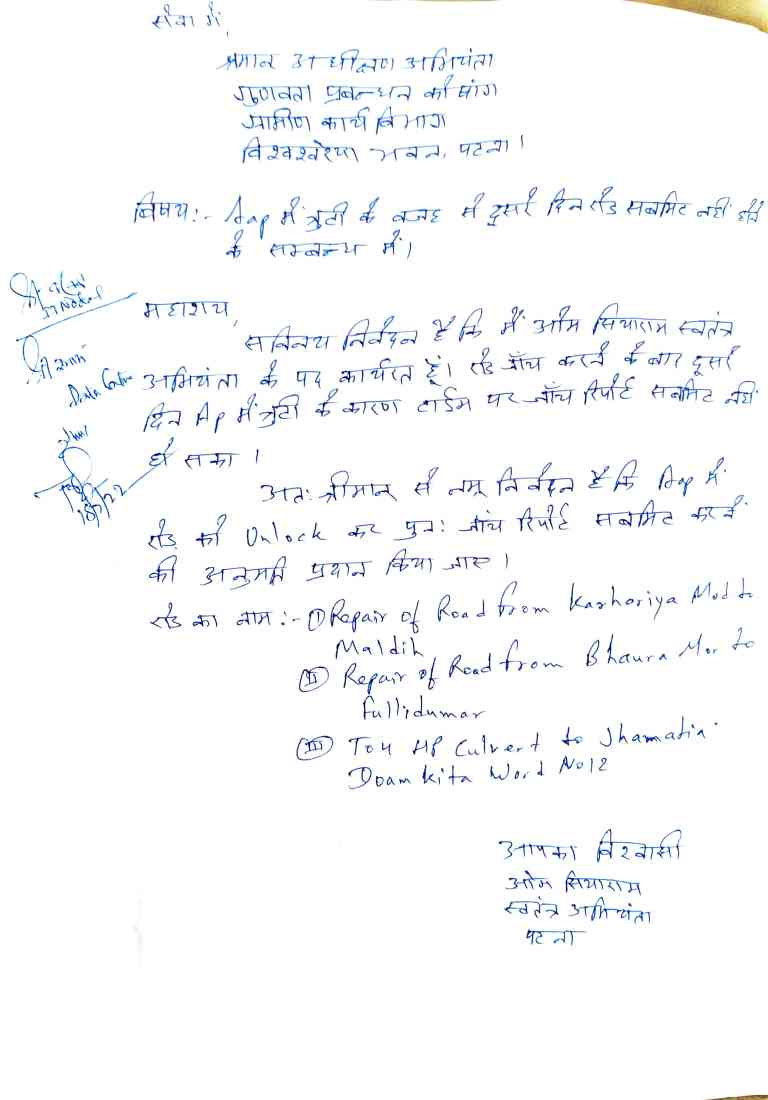 सेवा में,
प्रधान अधीक्षण अभियंता
गुणवता प्रबन्धन कोषांग
ग्रामीण कार्य विभाग
विश्वश्वरैया भवन, पटना।
विषय:- Aap में त्रुटी के वजह से दुसरे दिन रोड सबमिट नहीं होने
के सम्बन्ध में।
महाशय,
सविनय निवेदन है कि मैं ओम सियाराम स्वतंत्र
अभियंता के पद कार्यरत हूं। रोड जाँच करने के बाद दूसरे
दिन Ap में त्रुटी के कारण टाईम पर जाँच रिपोर्ट सबमिट नहीं
हो सका।
अतः श्रीमान से नम्र निवेदन है कि Aap में
रोड को Unlock कर पुनः जांच रिपोर्ट सबमिट करने
की अनुमति प्रदान किया जाए।
रोड का नाम:- (I) Repair of Road from Karhoriya Mod to
Maldih
(II) Repair of Road from Bhaura Mor to
Fullidumar
(III) To4 HP Culvert to Jhamatia
Doamkita Word No 12
आपका विश्वासी
ओम सियाराम
स्वतंत्र अभियंता
पटना
Data